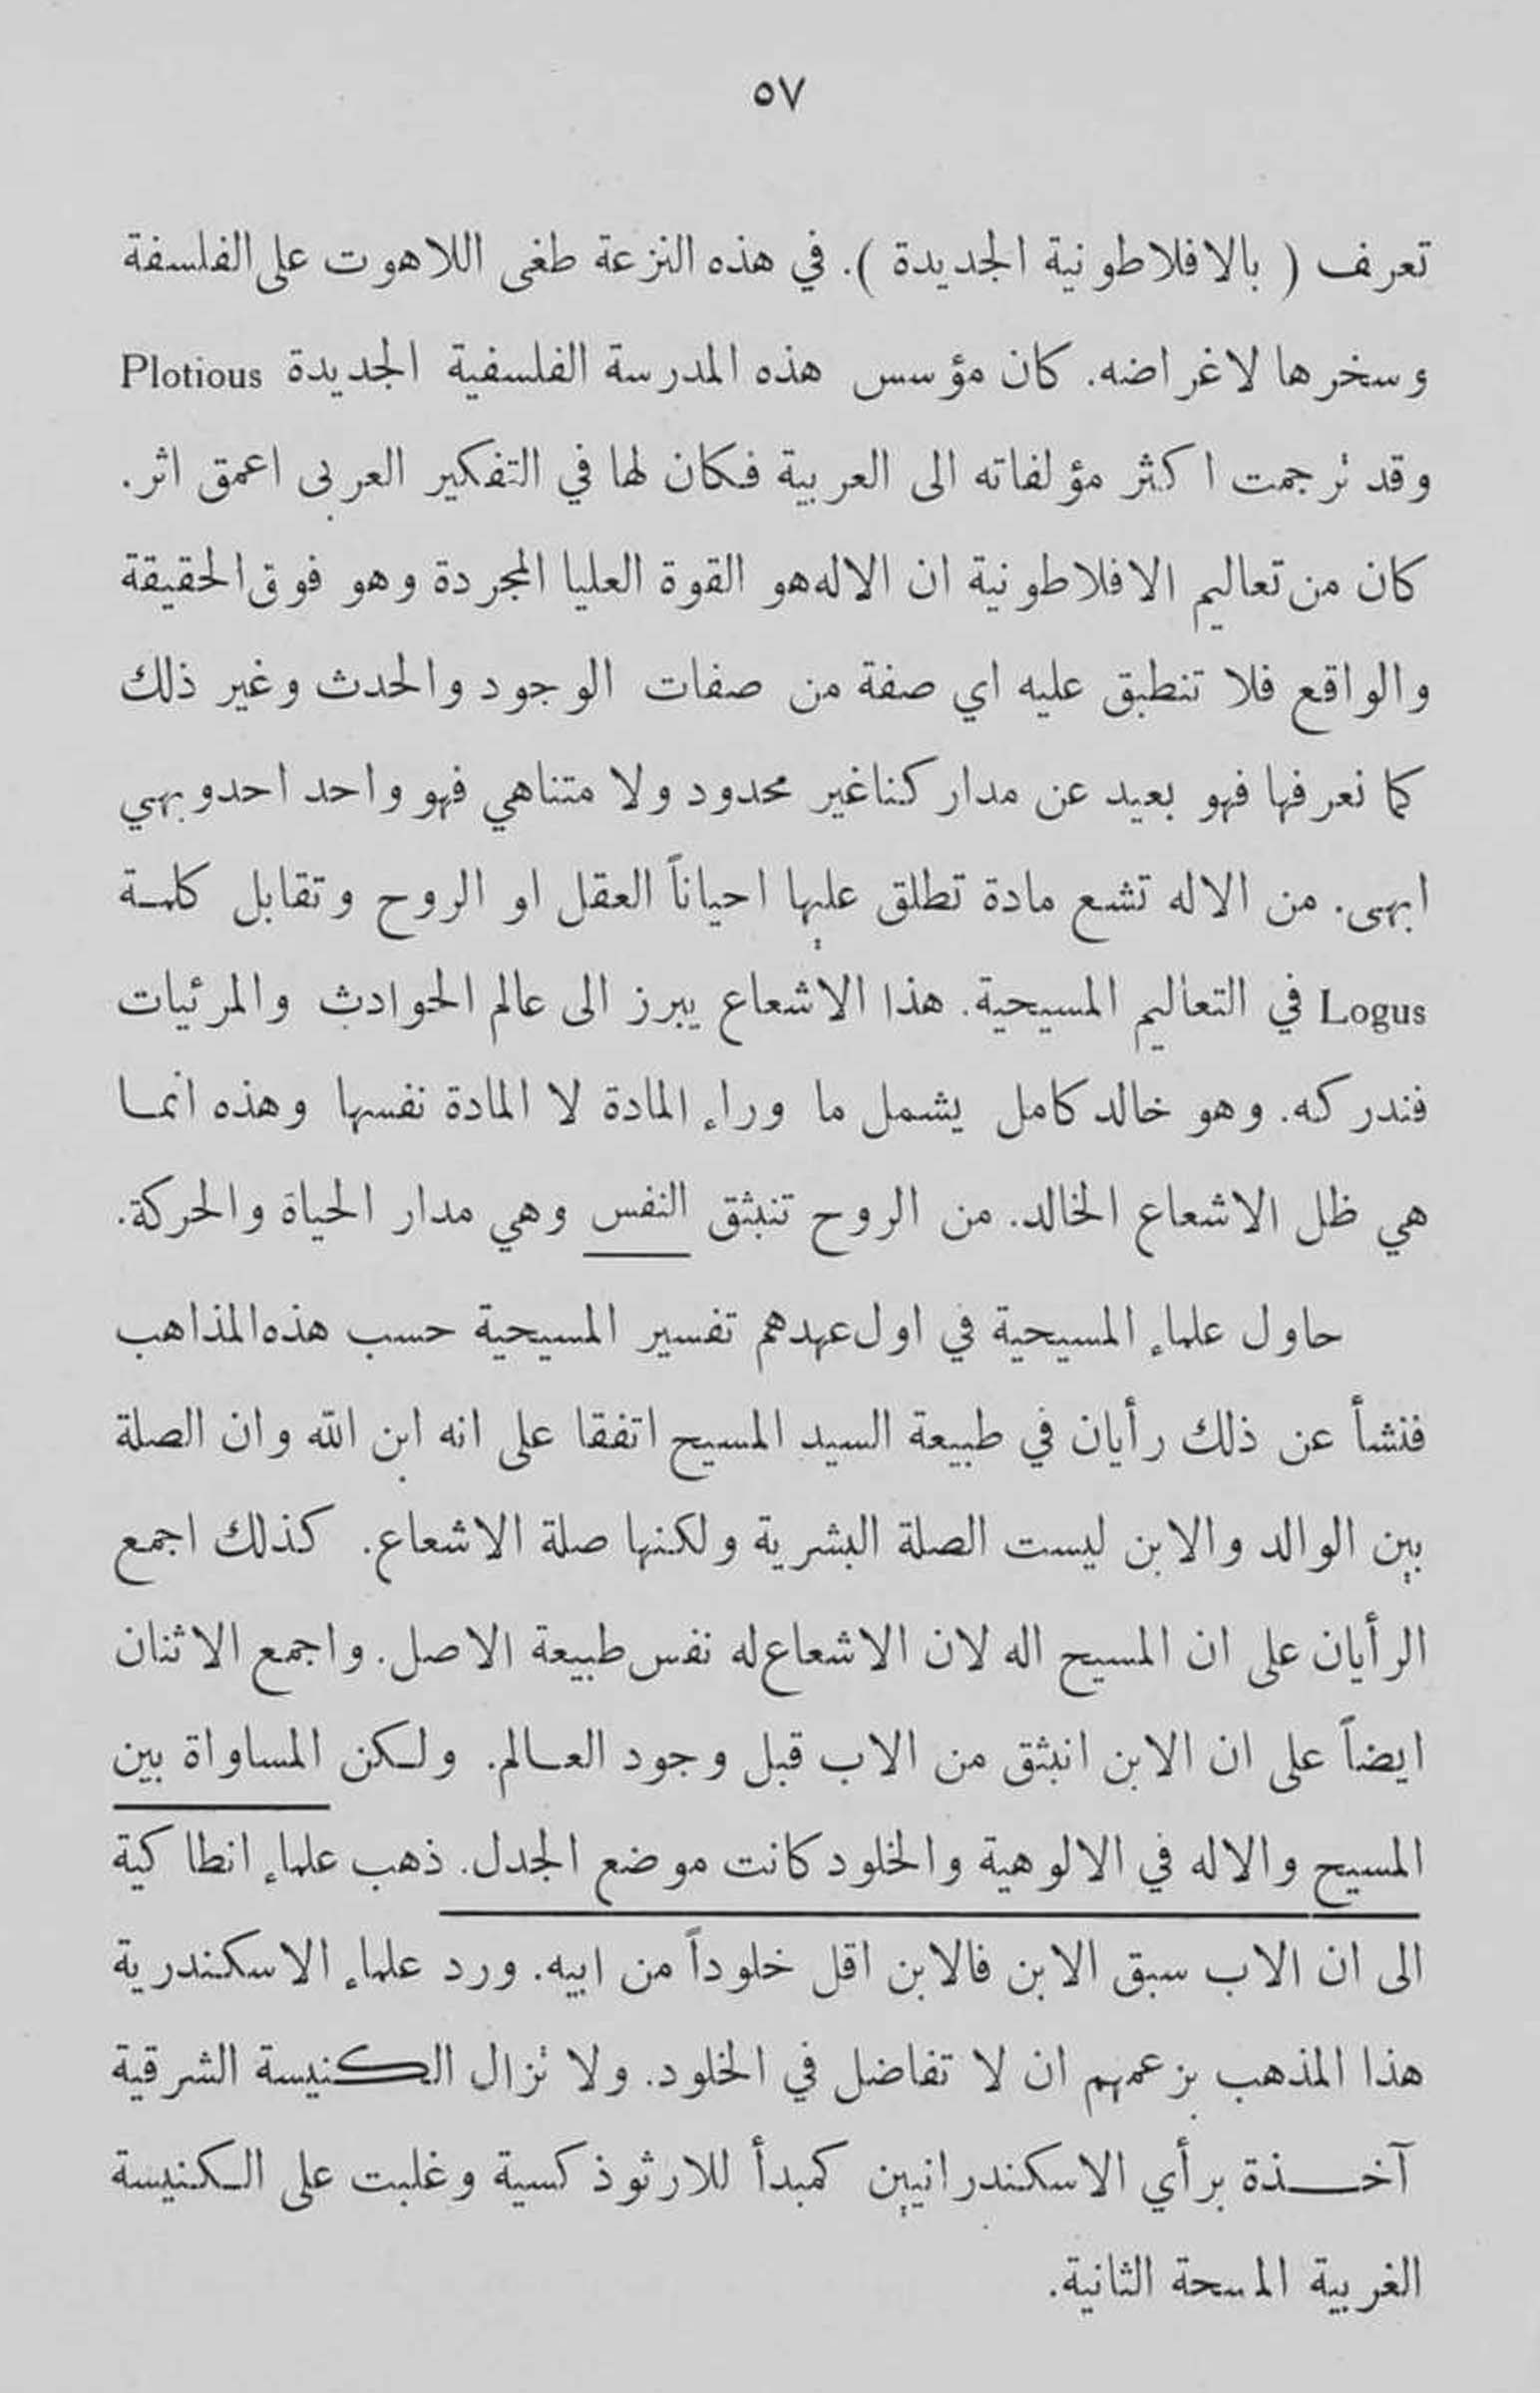 ٥٧
تعرف ( بالافلاطونية الجديدة ). في هذه النزعة طغى اللاهوت على الفلسفة
وسخرها لاغراضه. كان مؤسس هذه المدرسة الفلسفية الجديدة Plotious
وقد ترجمت اكثر مؤلفاته الى العربية فكان لها في التفكير العربي اعمق اثر.
كان من تعاليم الافلاطونية ان الاله هو القوة العليا المجردة وهو فوق الحقيقة
والواقع فلا تنطبق عليه اي صفة من صفات الوجود والحدث وغير ذلك
كما نعرفها فهو بعيد عن مداركنا غير محدود ولا متناهي فهو واحد احد وبهي
ابهى. من الاله تشع مادة تطلق عليها احياناً العقل او الروح وتقابل كلمة
Logus في التعاليم المسيحية. هذا الاشعاع يبرز الى عالم الحوادث والمرئيات
فندركه. وهو خالد كامل يشمل ما وراء المادة لا المادة نفسها وهذه انما
هي ظل الاشعاع الخالد. من الروح تنبثق النفس وهي مدار الحياة والحركة.
حاول علماء المسيحية في اول عهدهم تفسير المسيحية حسب هذه المذاهب
فنشأ عن ذلك رأيان في طبيعة السيد المسيح اتفقا على انه ابن الله وان الصلة
بين الوالد والابن ليست الصلة البشرية ولكنها صلة الاشعاع. كذلك اجمع
الرأيان على ان المسيح اله لان الاشعاع له نفس طبيعة الاصل. واجمع الاثنان
ايضاً على ان الابن انبثق من الاب قبل وجود العالم. ولكن المساواة بين
المسيح والاله في الالوهية والخلود كانت موضع الجدل. ذهب علماء انطاكية
الى ان الاب سبق الابن فالابن اقل خلوداً من ابيه. ورد علماء الاسكندرية
هذا المذهب بزعمهم ان لا تفاضل في الخلود. ولا تزال الكنيسة الشرقية
آخذة برأي الاسكندرانيين كمبدأ للارثوذكسية وغلبت على الكنيسة
الغربية المسحة الثانية.